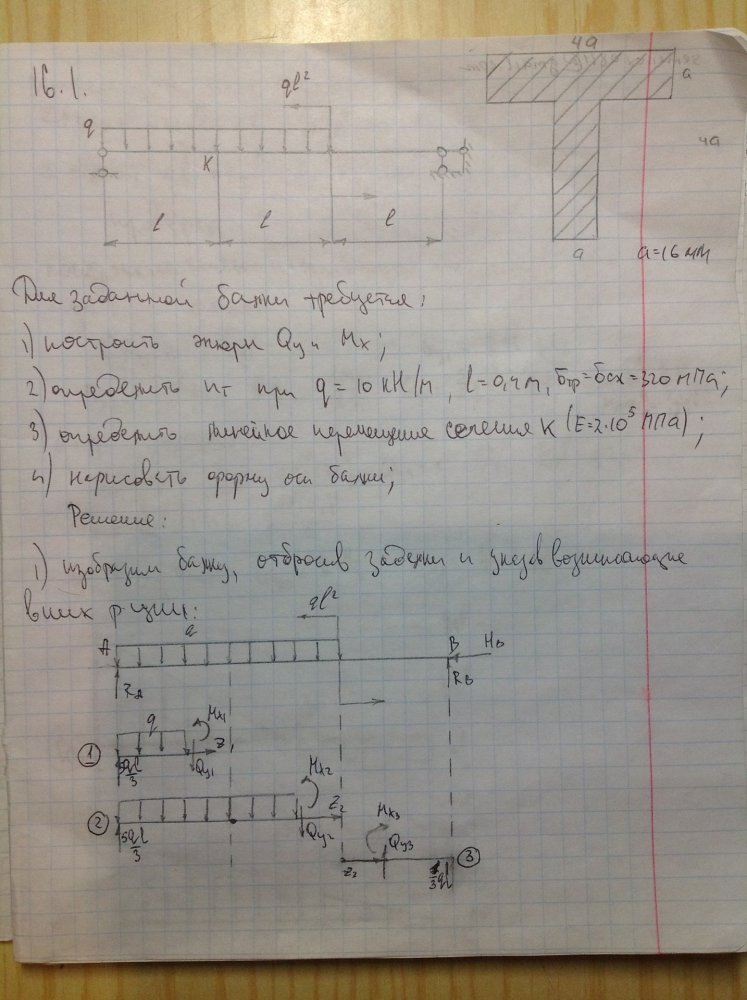 16.1.
ql²
4a
a
q
K
4a
l l l
a
a=16 мм
Для заданной балки требуется:
1) построить эпюры Qy и Mx;
2) определить nт при q = 10 кН/м, l=0,4м, бтр=бсж=320мПа;
3) определить линейное перемещение сечения K (E=2·10⁵ МПа);
4) нарисовать форму оси балки;
Решение:
1) изобразим балку, отбросив и указав возникающие
в них р-ции:
ql²
q
A
B
HB
RA
RB
q
Mx1
1
z1
5ql/3
Qy1
Mx2
2
z2
5ql/3
Qy2
Mx3
Qy3
3
z2
1/3 ql